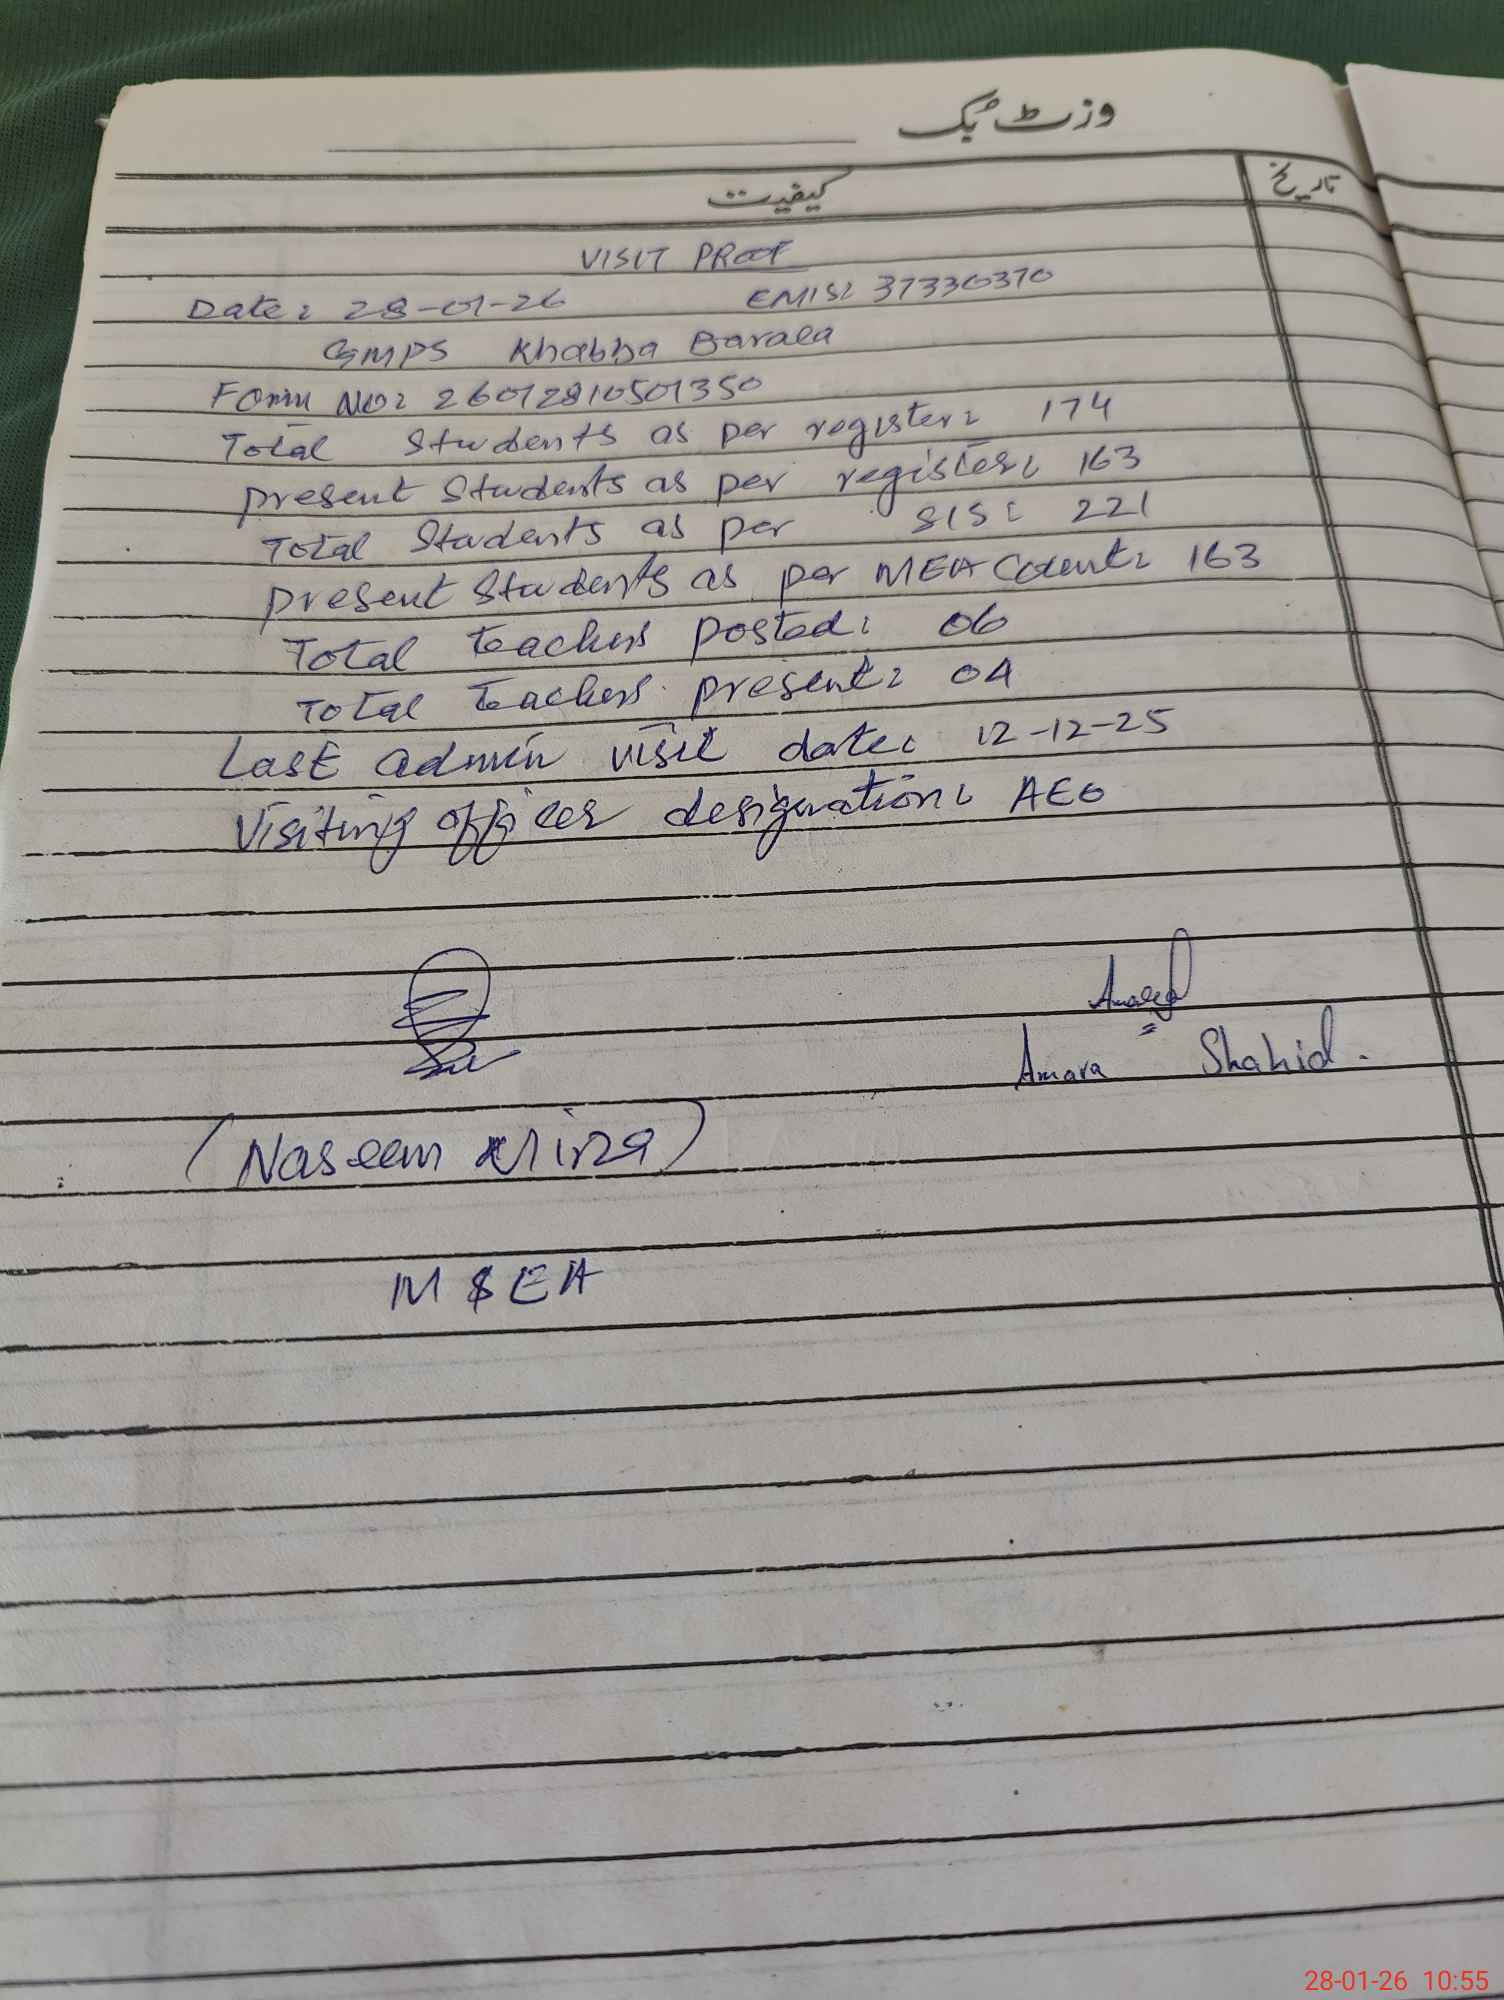 وزٹ بک
کیفیت
تاریخ
VISIT PROOF
Date: 28-01-26 EMIS: 37330370
GMPS Khabba Barala
Form No: 26012810501350
Total Students as per register: 174
Present Students as per register: 163
Total Students as per SIS: 221
Present Students as per MEA Count: 163
Total teachers posted: 06
Total teachers present: 04
Last admin visit date: 12-12-25
Visiting officer designation: AEO
Amara Shahid.
(Naseem Mirza)
MSEA
28-01-26 10:55